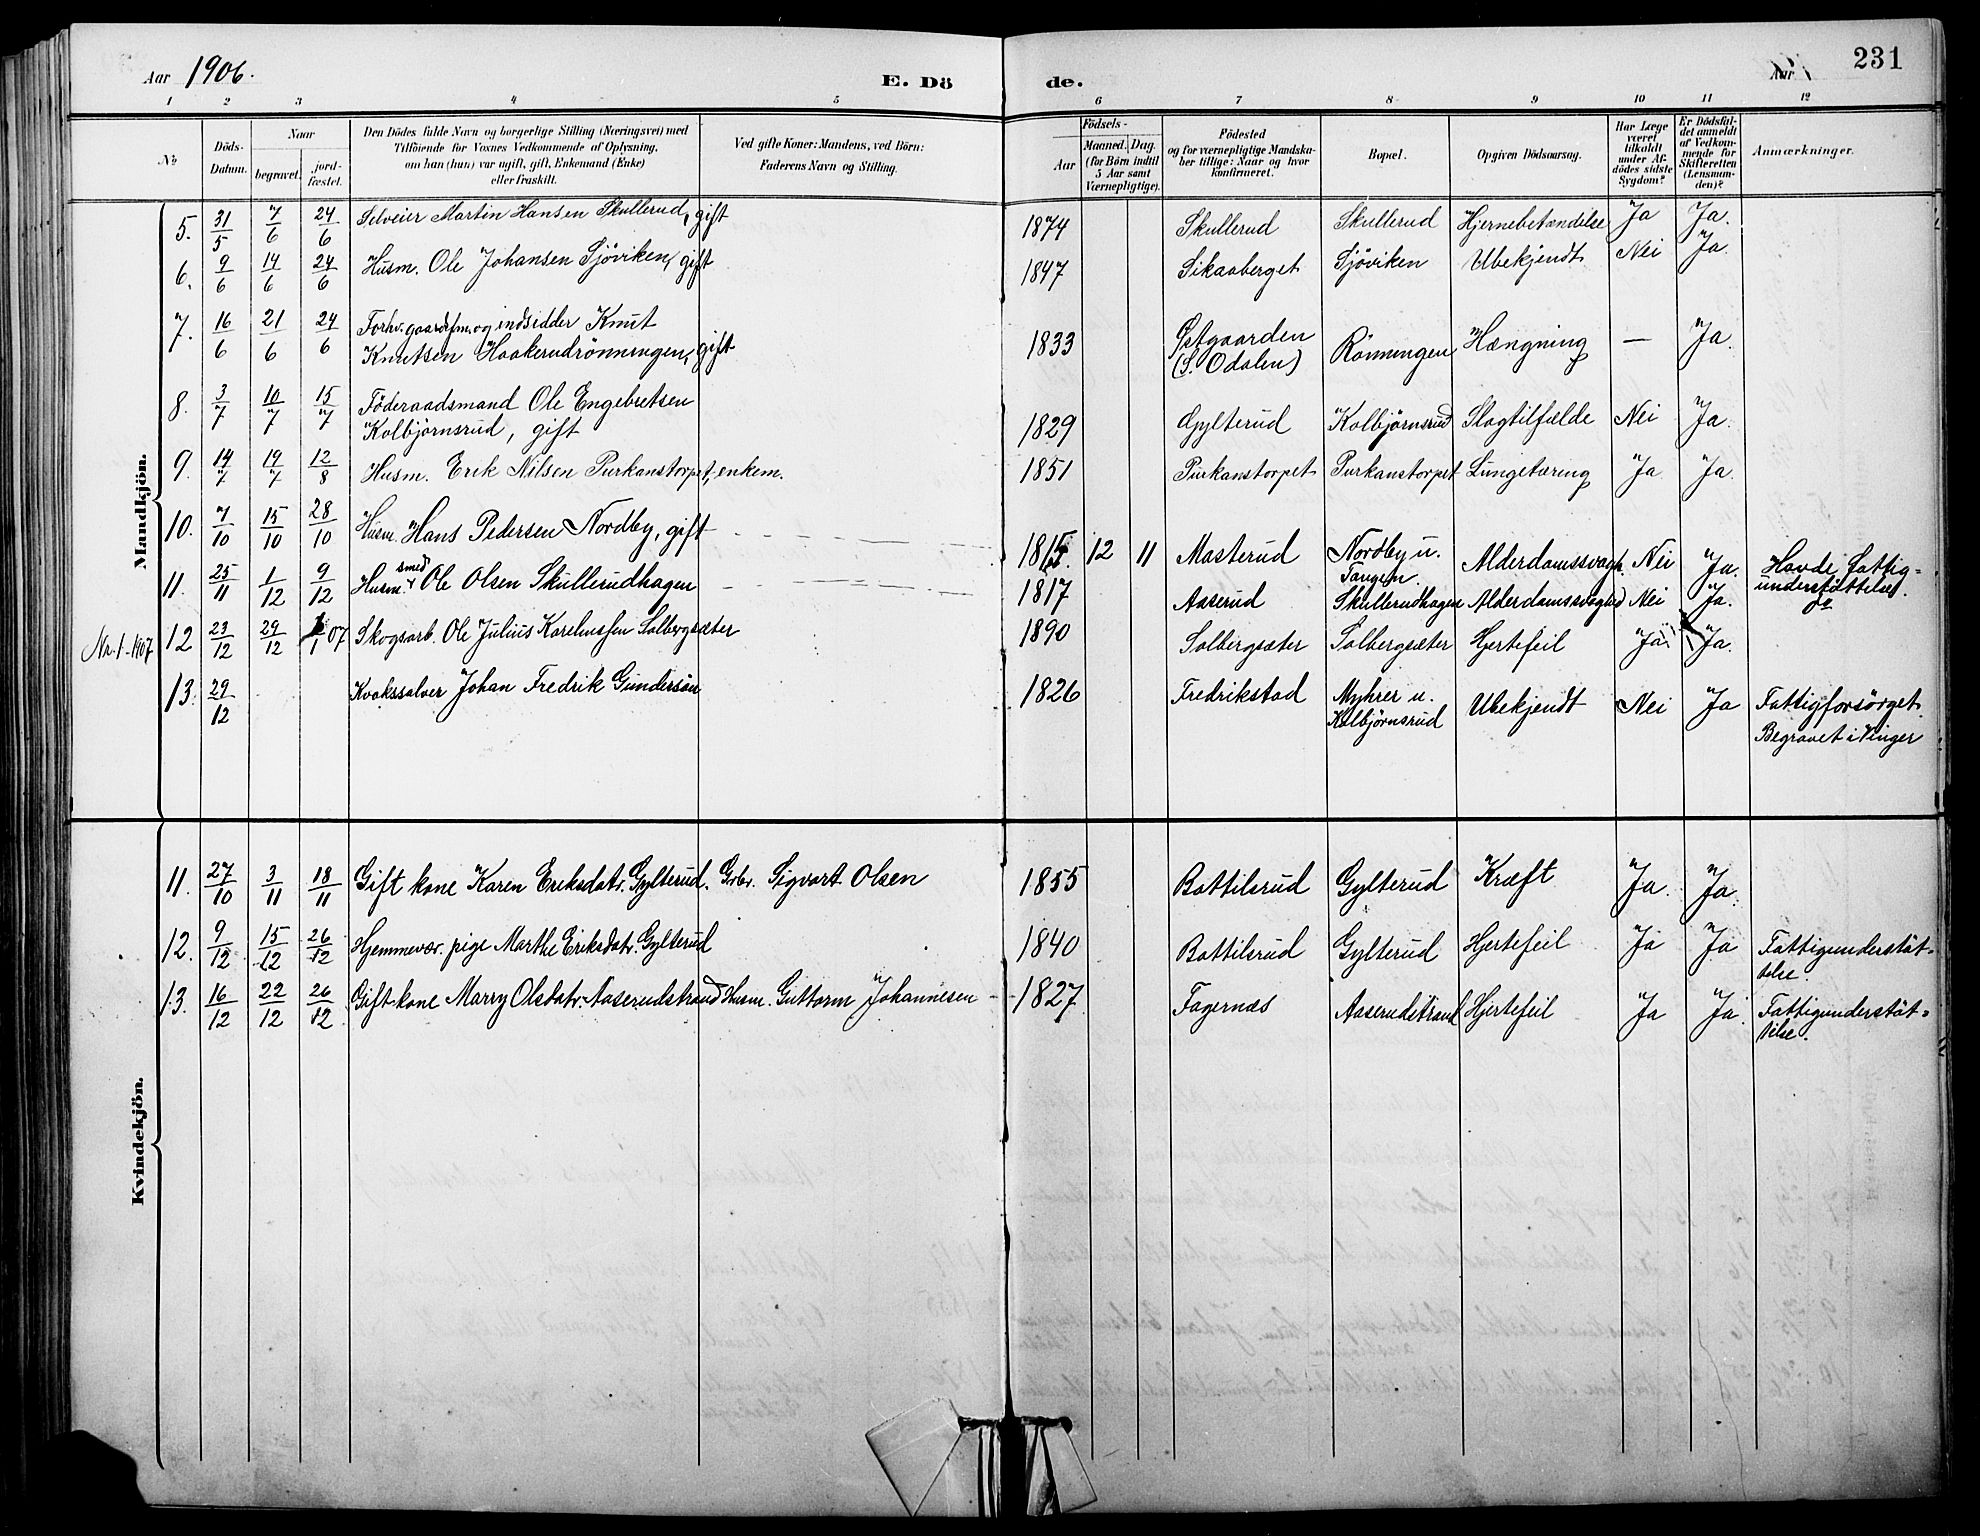 Aar 1906.
E. Dö
de.
Aar
231
1 2 3 4 5 6 7 8 9 10 11 12
No
Döds-
Datum.
Naar
begravet.
jord-
fæstet.
Den Dödes fulde Navn og borgerlige Stilling (Næringsvei) med
Tilföiende for Voxnes Vedkommende af Oplysning,
om han (hun) var ugift, gift, Enkemand (Enke)
eller fraskilt.
Ved gifte Koner: Mandens, ved Börn:
Faderens Navn og Stilling.
Födsels-
Aar
Maaned. Dag.
(for Börn indtil
5 Aar samt
Værnepligtige).
Födested
og for værnepligtige Mandska-
ber tillige: Naar og hvor
konfirmeret.
Bopæl.
Opgiven Dödsaarsag.
Har Læge
været
tilkaldt
under Af-
dödes sidste
Sygdom?
Er Dödsfal-
det anmeldt
af Vedkom-
mende for
Skifteretten
(Lensman-
den)?
Anmærkninger.
Mandkjön.
5. 31/5 7/6 24/6 Selveier Martin Hansen Skullerud, gift 1874 Skullerud Skullerud Hjernebetændelse Ja Ja.
6. 9/6 14/6 24/6 Husm. Ole Johansen Sjöviken, gift 1847 Sikaaberget Sjöviken Ubekjendt Nei Ja.
7. 16/6 21/6 24/6 Forhv. gaardbrn. og indsidder Knut
Knutsen Haakerudrönningen, gift 1833 Östgaarden
(S. Odalen) Rönningen Hængning — Ja.
8. 3/7 10/7 15/7 Föderaadsmand Ole Engebretsen
Kolbjörnsrud, gift 1829 Gylterud Kolbjörnsrud Slagtilfælde Nei Ja.
9. 14/7 19/7 12/8 Husm. Erik Nilsen Purkanstorpet, enkem. 1851 Purkanstorpet Purkanstorpet Lungetæring Ja Ja.
10. 7/10 15/10 28/10 Husm. Hans Pedersen Nordby, gift 1815. 12 11 Masterud Nordby u.
Tangen. Alderdomssvagh. Nei Ja. Havde fattig=
understöttelse.
11. 25/11 1/12 9/12 Husm. smed Ole Olsen Skullerudhagen 1817 Aaserud Skullerudhagen Alderdomssvaghed Nei Ja. do
Nr. 1 - 1907 12 23/12 29/12 1 07 Skogsarb. Ole Julius Karelinssen Solbergsæter 1890 Solbergsæter Solbergsæter Hjertefeil Ja Ja.
13. 29/12 Kvaksalver Johan Fredrik Gundersön 1826 Fredrikstad Myhrer u.
Kolbjörnsrud Ubekjendt Nei Ja Fattigforsörget.
Begravet i Vinger
Kvindekjön.
11. 27/10 3/11 18/11 Gift kone Karen Eriksdatr. Gylterud. Grbr. Sigvart Olsen 1855 Bottilsrud Gylterud Kræft Ja. Ja.
12. 9/12 15/12 26/12 Hjemmevær. pige Marthe Eriksdatr. Gylterud 1840 Bottilsrud Gylterud Hjertefeil Ja Ja Fattigunderstöt-
telse.
13. 16/12 22/12 26/12 Gift kone Marry Olsdatr. Aaserudstrand Husm. Guttorm Johannesen 1827 Fagernæs Aaserudstrand Hjertefeil Ja Ja. Fattigunderstöt=
telse.